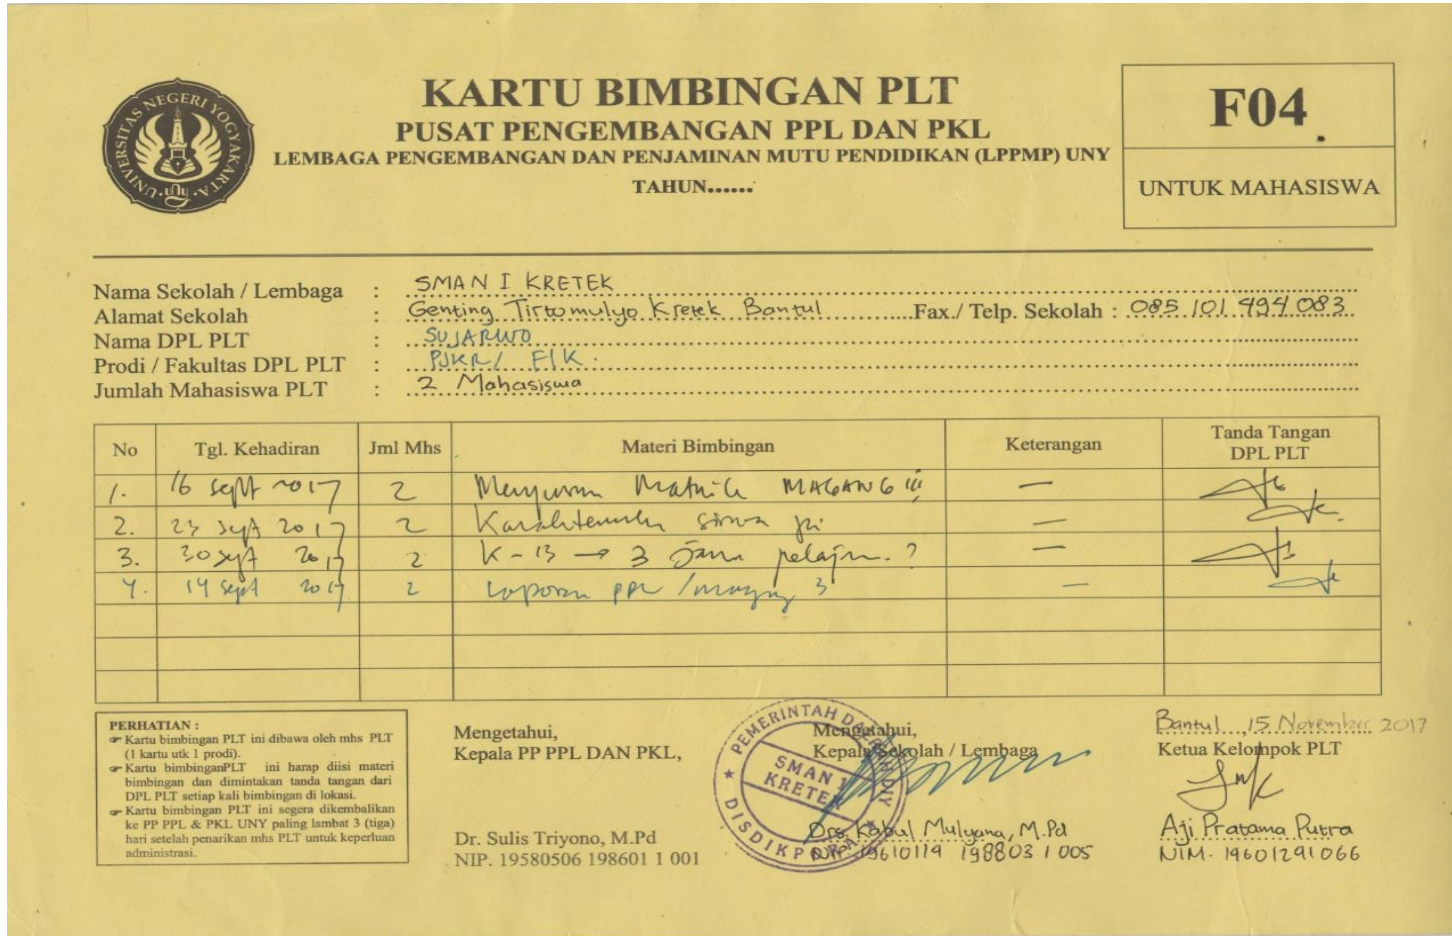 UNIVERSITAS NEGERI YOGYAKARTA
KARTU BIMBINGAN PLT
PUSAT PENGEMBANGAN PPL DAN PKL
LEMBAGA PENGEMBANGAN DAN PENJAMINAN MUTU PENDIDIKAN (LPPMP) UNY
TAHUN......
F04
UNTUK MAHASISWA
Nama Sekolah / Lembaga : SMAN I KRETEK
Alamat Sekolah : Genting Tirtomulyo Kretek Bantul Fax./ Telp. Sekolah : 085 101 494 083
Nama DPL PLT : SUJARWO
Prodi / Fakultas DPL PLT : PJKR / FIK.
Jumlah Mahasiswa PLT : 2 Mahasiswa
No Tgl. Kehadiran Jml Mhs Materi Bimbingan Keterangan Tanda Tangan DPL PLT
1. 16 sept 2017 2 Menyusun Matrik MAGANG III —
2. 23 sept 2017 2 siswa —
3. 30 sept 2017 2 K-13 → 3 Jam pelajaran ? —
4. 14 sept 2017 2 Laporan PPL / magang 3 —
PERHATIAN :
☞ Kartu bimbingan PLT ini dibawa oleh mhs PLT
(1 kartu utk 1 prodi).
☞ Kartu bimbinganPLT ini harap diisi materi
bimbingan dan dimintakan tanda tangan dari
DPL PLT setiap kali bimbingan di lokasi.
☞ Kartu bimbingan PLT ini segera dikembalikan
ke PP PPL & PKL UNY paling lambat 3 (tiga)
hari setelah penarikan mhs PLT untuk keperluan
administrasi.
Mengetahui,
Kepala PP PPL DAN PKL,
Dr. Sulis Triyono, M.Pd
NIP. 19580506 198601 1 001
Mengetahui,
Kepala Sekolah / Lembaga
PEMERINTAH DAERAH DIY
SMAN I
KRETEK
DISDIKPORA
Drs. Kabul Mulyana, M.Pd
NIP. 19610119 198803 1 005
Bantul, 15 November 2017
Ketua Kelompok PLT
Aji Pratama Putra
NIM. 14601291066